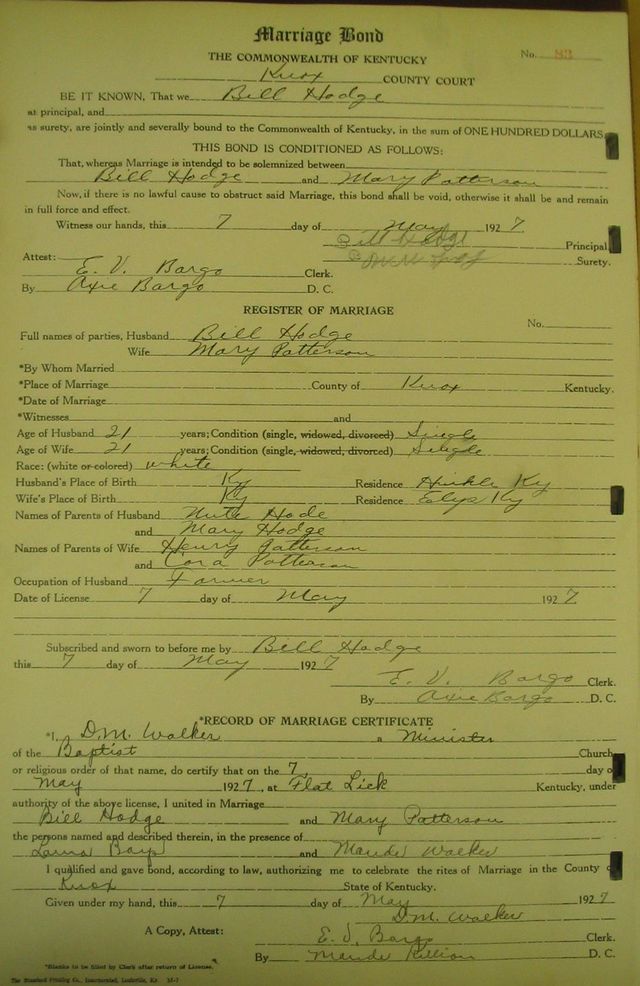 Marriage Bond
No. 83
THE COMMONWEALTH OF KENTUCKY
Knox COUNTY COURT
BE IT KNOWN, That we Bill Hodge
as principal, and
as surety, are jointly and severally bound to the Commonwealth of Kentucky, in the sum of ONE HUNDRED DOLLARS.
THIS BOND IS CONDITIONED AS FOLLOWS:
That, whereas Marriage is intended to be solemnized between
Bill Hodge and Mary Patterson
Now, if there is no lawful cause to obstruct said Marriage, this bond shall be void, otherwise it shall be and remain
in full force and effect.
Witness our hands, this 7 day of May 1927
Bill Hodge Principal
Surety.
Attest:
E. V. Bargo Clerk.
By Axie Bargo D. C.
REGISTER OF MARRIAGE
No.
Full names of parties, Husband Bill Hodge
Wife Mary Patterson
*By Whom Married
*Place of Marriage County of Knox Kentucky.
*Date of Marriage
*Witnesses and
Age of Husband 21 years; Condition (single, widowed, divorced) Single
Age of Wife 21 years; Condition (single, widowed, divorced) Single
Race: (white or colored) white
Husband's Place of Birth Ky Residence Hinkle Ky
Wife's Place of Birth Ky Residence Elys Ky
Names of Parents of Husband Hode
and Mary Hodge
Names of Parents of Wife Henry Patterson
and Cora Patterson
Occupation of Husband Farmer
Date of License 7 day of May 1927
Subscribed and sworn to before me by Bill Hodge
this 7 day of May 1927
E. V. Bargo Clerk.
By Axie Bargo D. C.
*RECORD OF MARRIAGE CERTIFICATE
*I, D.M. Walker a Minister
of the Baptist Church
or religious order of that name, do certify that on the 7 day o
May 1927, at Flat Lick Kentucky, under
authority of the above license, I united in Marriage
Bill Hodge and Mary Patterson
the persons named and described therein, in the presence of
Laura Bays and Maude Walker
I qualified and gave bond, according to law, authorizing me to celebrate the rites of Marriage in the County o
Knox State of Kentucky.
Given under my hand, this 7 day of May 1927
D.M. Walker
A Copy, Attest: E. V. Bargo Clerk.
By Maude Killion D. C.
*Blanks to be filled by Clerk after return of License.
The Standard Printing Co., Incorporated, Louisville, Ky.